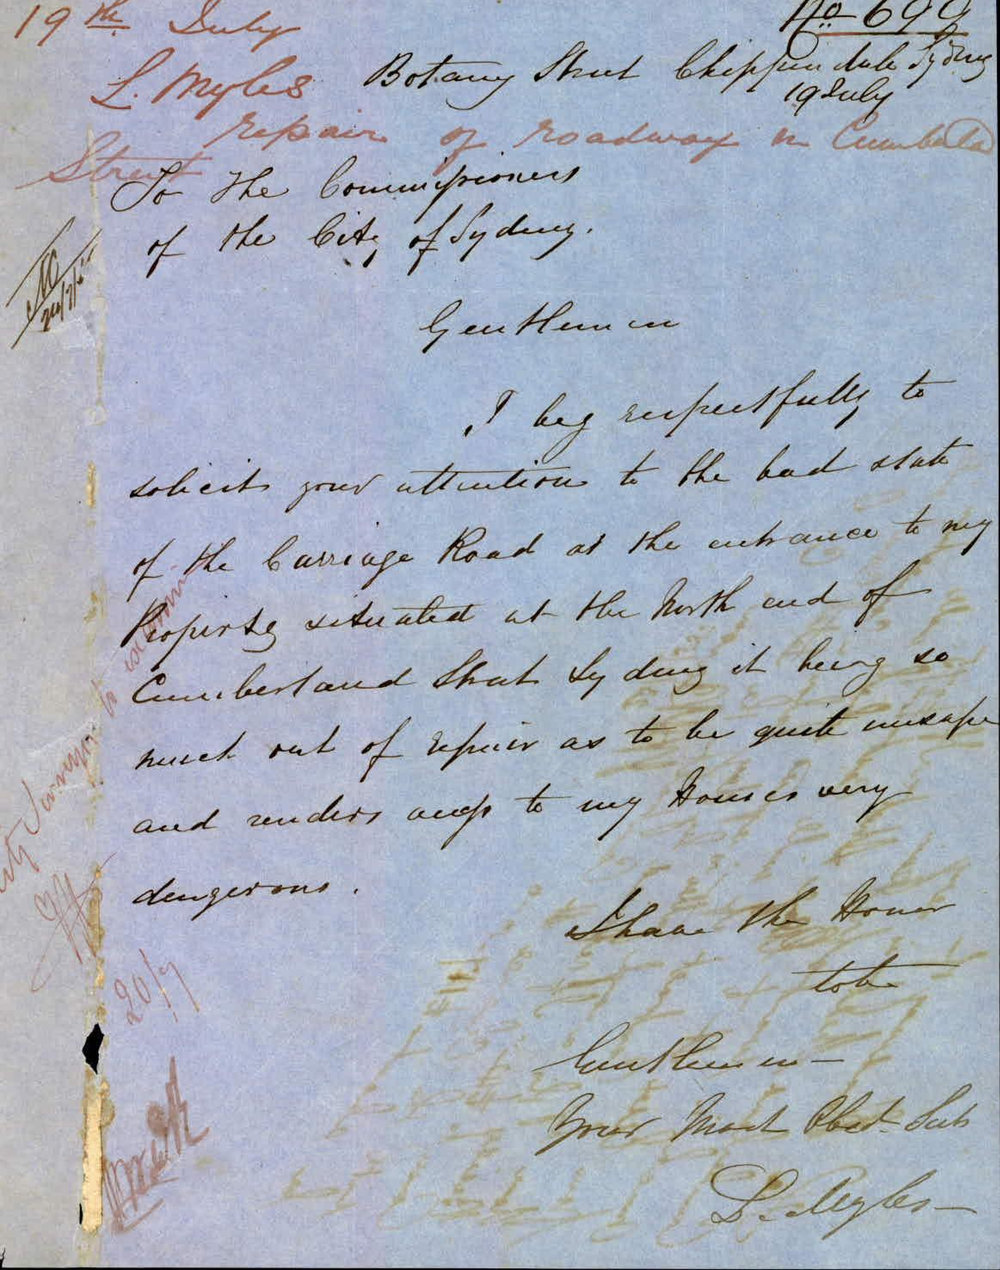 19th July
No 690
L. Myles
Botany Street Chippendale Sydney
19 July
repair of roadway in Cumberld
Street
To the Commissioners
of the City of Sydney.
Gentlemen
I beg respectfully to
solicit your attention to the bad state
of the Carriage Road at the entrance to my
Property situated at the North end of
Cumberland Street Sydney it being so
much out of repair as to be quite unsafe
and renders acess to my Houses very
dangerous.
I have the Honor
to be
Gentlemen
Your Most Obdt Svt
L. Myles
City Surveyor to
20/7